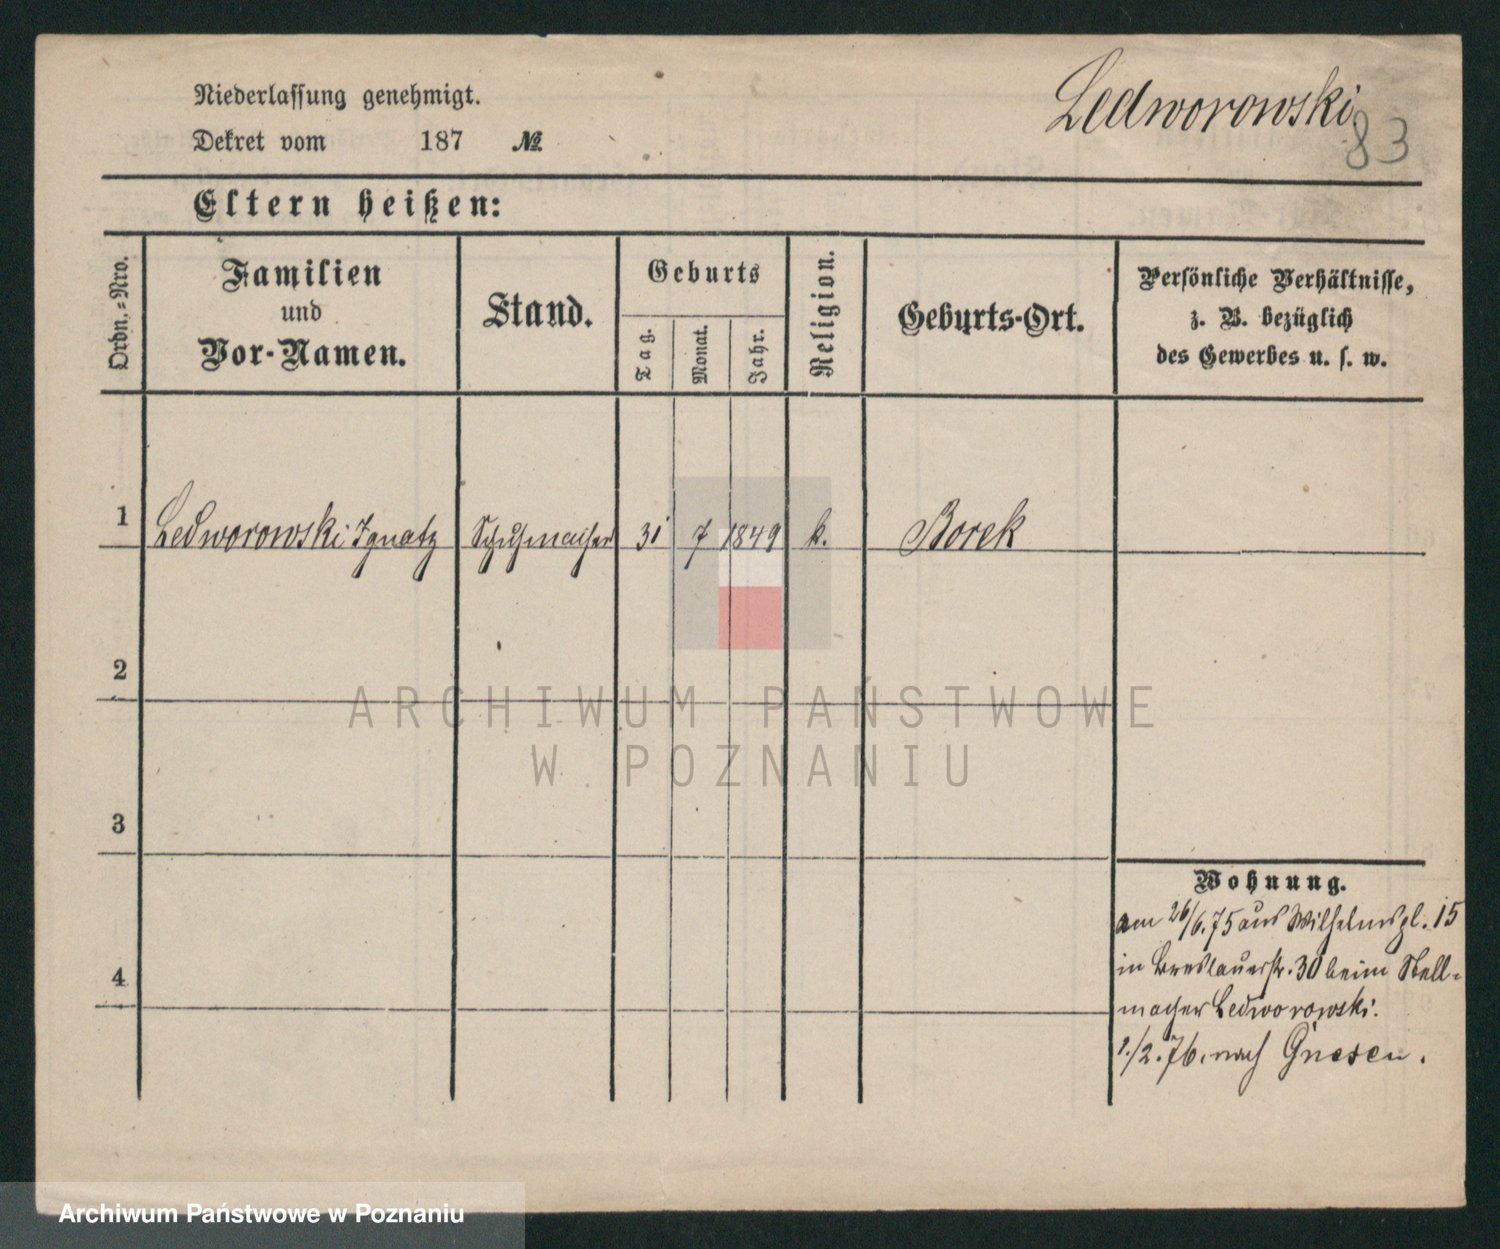 Niederlassung genehmigt.
Ledworowski
83
Dekret vom 187 №
Eltern heißen:
Ordn.-Nro.
Familien
und
Vor-Namen.
Stand.
Geburts
Tag.
Monat.
Jahr.
Religion.
Geburts-Ort.
Persönliche Verhältnisse,
z. B. bezüglich
des Gewerbes u. s. w.
1 Ledworowski Ignatz Schuhmacher 31 7 1849 k. Borek
2
ARCHIWUM PAŃSTWOWE
W POZNANIU
3
Wohnung.
am 26/6.75 aus Wilhelmspl. 15
in Breslauerstr. 30 beim Stell-
macher Ledworowski.
1./2.76. nach Gnesen.
4
Archiwum Państwowe w Poznaniu